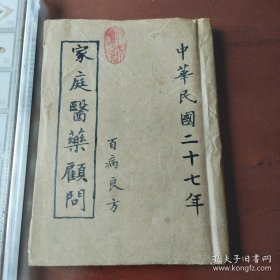 中華民國二十七年
百病良方
家庭醫藥顧問
孔夫子旧书网